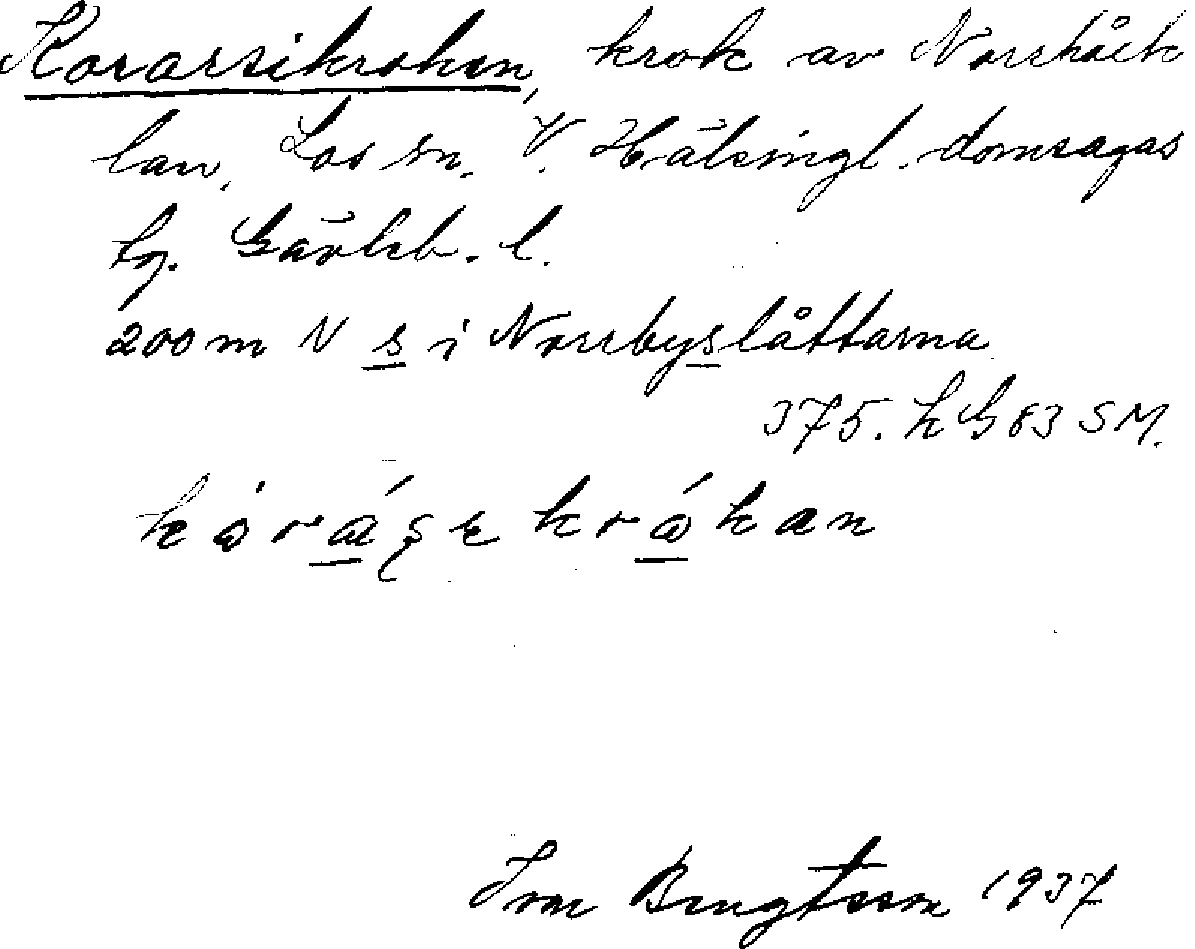 Korarsikroken, krok av Norrhåck
lan, Los sn. V. Hälsingl. domsagas
tg. Gävleb. l.
200 m N s i Norrbyslåttarna
375. h G 83 SM.
Ivar Bengtsson 1937